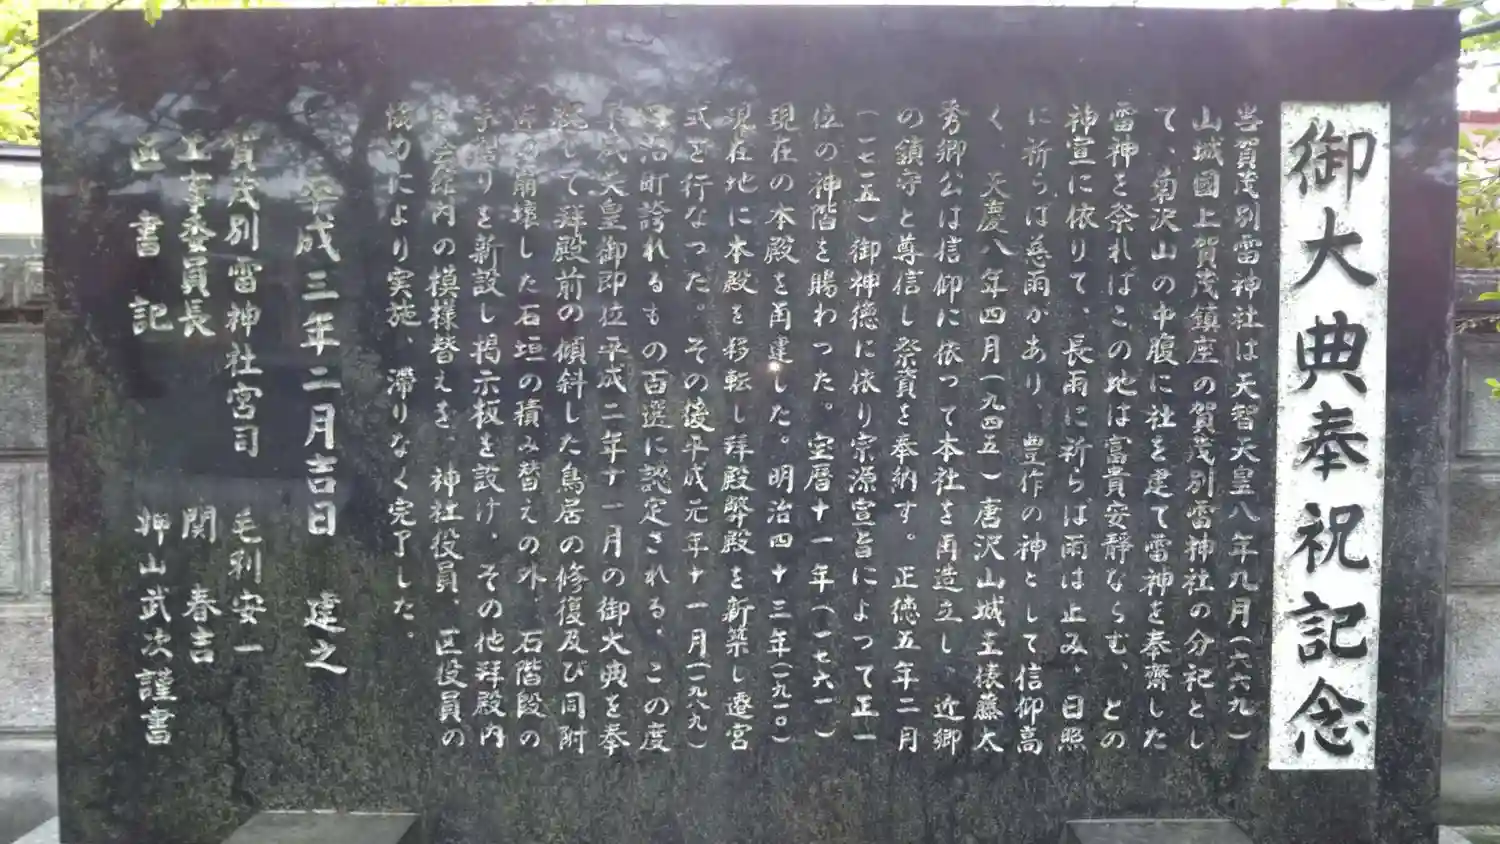 御大典奉祝記念
当賀茂別雷神社は天智天皇八年九月(六六九)
山城國上賀茂鎮座の賀茂別雷神社の分祀とし
て、菊沢山の中腹に社を建て雷神を奉齋した
雷神を祭ればこの地は富貴安静ならむ、との
神宣に依りて、長雨に祈らば雨は止み、日照
に祈らば慈雨があり、豊作の神として信仰高
く、天慶八年四月(九四五)唐沢山城主俵藤太
秀郷公は信仰に依って本社を再造立し 近郷
の鎮守と尊信し祭資を奉納す。正徳五年二月
(一七一五)御神徳に依り宗源宣旨によって正一
位の神階を賜わった。宝暦十一年(一七六一)
現在の本殿を再建した。明治四十三年(一九一〇)
現在地に本殿を移転し拝殿幣殿を新築し遷宮
式を行なった。その後平成元年十一月(一九八九)
治町誇れるもの百選に認定される、この度
天皇御即位平成二年十一月の御大典を奉
して拝殿前の傾斜した鳥居の修復及び同附
崩壊した石垣の積み替えの外、石階段の
手摺りを新設し掲示板を設け、その他拝殿内
会館内の模様替えを、神社役員、区役員の
協力により実施、滞りなく完了した。
平成三年二月吉日 建之
賀茂別雷神社宮司 毛利安一
工事委員長 関 春吉
区書記 山武次謹書